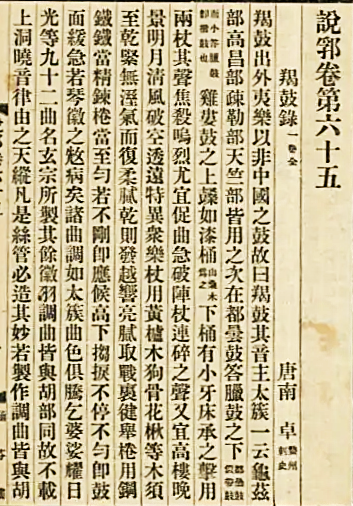 說郛卷第六十五
羯鼓錄 一卷全 唐南 卓 婺州刺史
羯鼓出外夷樂以非中國之鼓故曰羯鼓其音主太簇一云龜茲
部高昌部疎勒部天竺部皆用之次在都曇鼓答臘鼓之下
雞婁鼓之上如漆桶山桑木爲之下桶有小牙床承之擊用
兩杖其聲焦殺鳴烈尤宜促曲急破陣杖連碎之聲又宜高樓晚
景明月清風破空透遠特異衆樂杖用黃櫨木狗骨花楸等木須
至乾緊無溼氣而復柔膩乾則發越響亮膩取戰裛健舉棬用鋼
鐵鐵當精鍊棬當至勻若不剛即應候高下搊捩不停不勻即鼓
面緩急若琴徽之病矣諸曲調如太簇曲色俱騰乞婆娑耀日
光等九十二曲名玄宗所製其餘徵羽調曲皆與胡部同故不載
上洞曉音律由之天縱凡是絲管必造其妙若製作調曲皆與胡